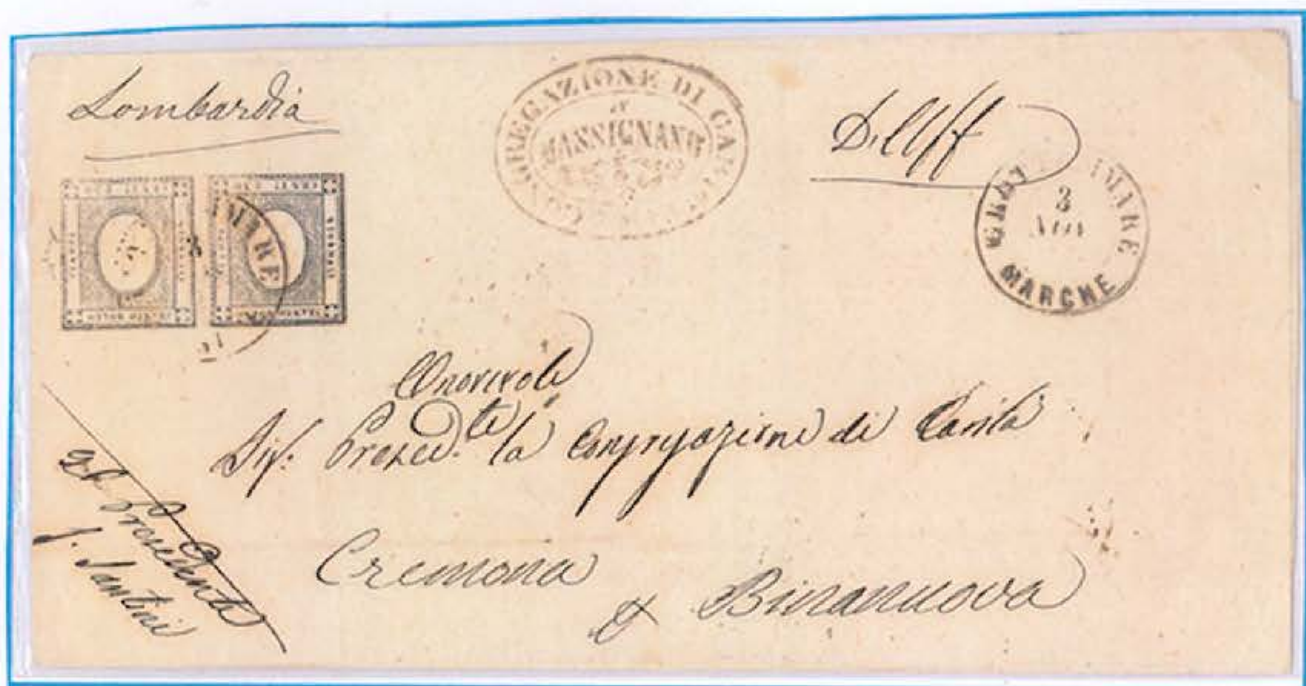 Lombardia
CONGREGAZIONE DI CARITÀ
DI
MASSIGNANO
D'Uff
GROTTAMMARE
3
NOV
MARCHE
MARE
Onorevole
Sig: Presid.te la Congregazione di Carità
Cremona
Binanuova
Il Presidente
f. Santini